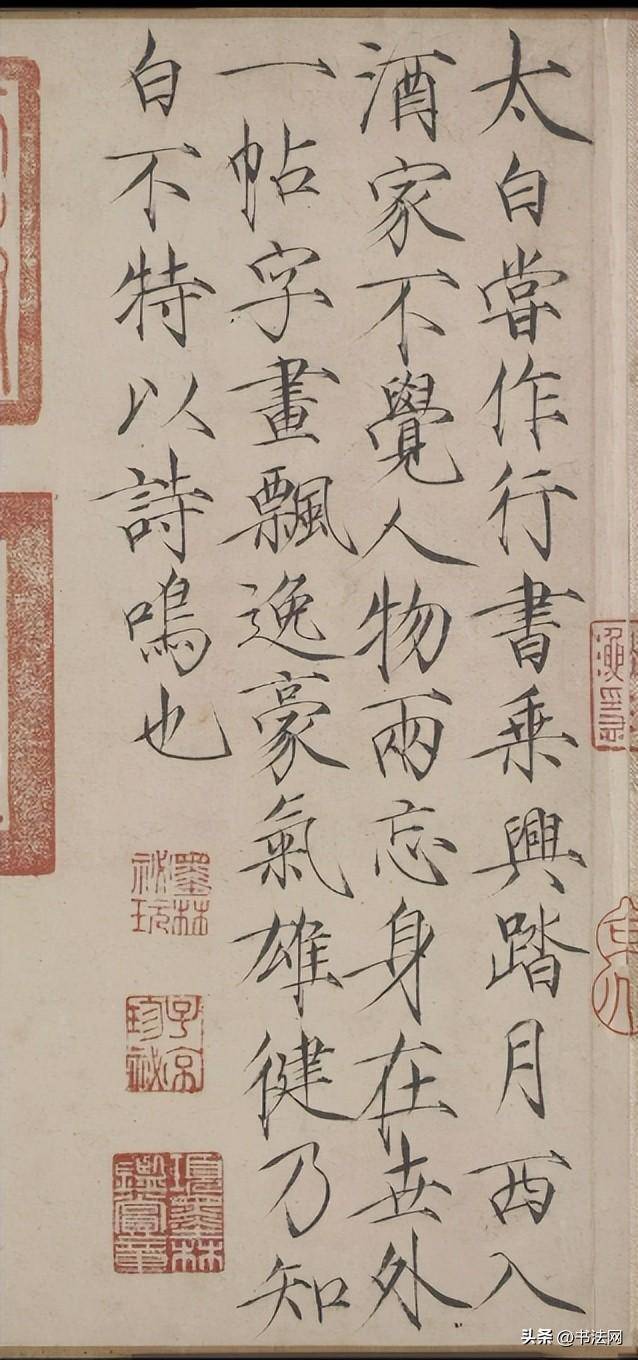 太白嘗作行書乗興踏月西入
酒家不覺人物兩忘身在世外
一帖字畫飄逸豪氣雄健乃知
白不特以詩鳴也
墨林祕玩
子京珍祕
項墨林鑑賞章
头条 @书法网